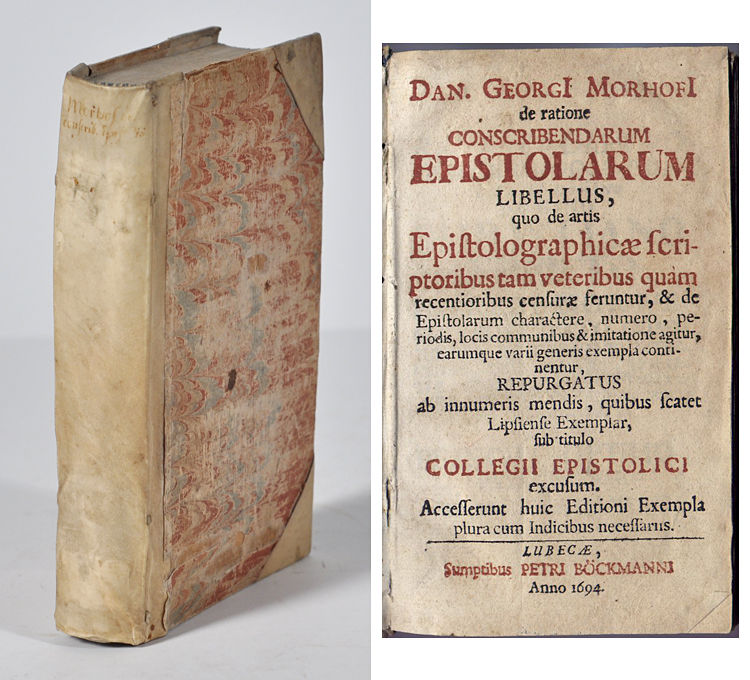 Morhof
DAN. GEORGI MORHOFI
de ratione
CONSCRIBENDARUM
EPISTOLARUM
LIBELLUS,
quo de artis
Epiſtolographicæ ſcri-
ptoribus tam veteribus quàm
recentioribus cenſuræ feruntur, & de
Epiſtolarum charactere, numero, pe-
riodis, locis communibus & imitatione agitur,
earumque varii generis exempla conti-
nentur,
REPURGATUS
ab innumeris mendis, quibus ſcatet
Lipſienſe Exemplar,
ſub titulo
COLLEGII EPISTOLICI
excuſum.
Acceſſerunt huic Editioni Exempla
plura cum Indicibus neceſſariis.
LUBECÆ,
Sumptibus PETRI BÖCKMANNI
Anno 1694.